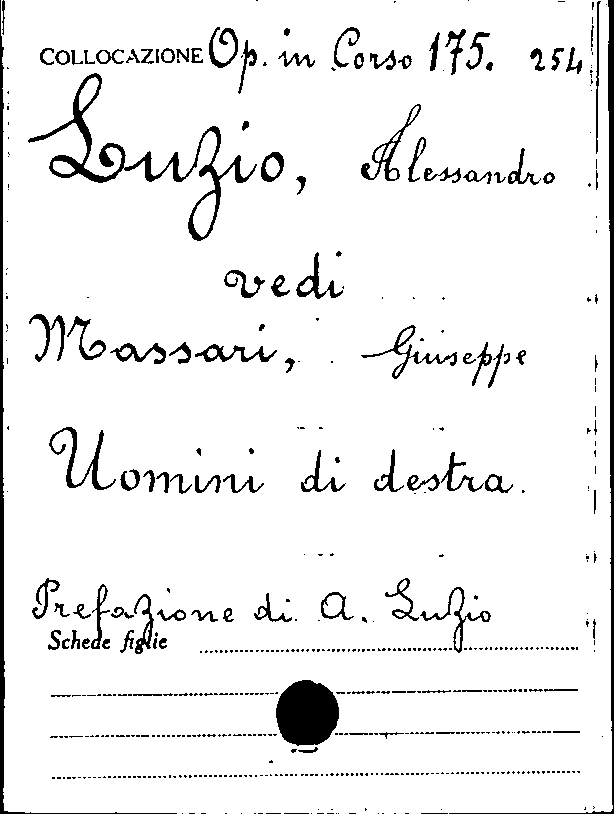 COLLOCAZIONE Op. in Corso 175. 254
Luzio, Alessandro
vedi
Massari, Giuseppe
Uomini di destra.
Prefazione di A. Luzio
Schede figlie